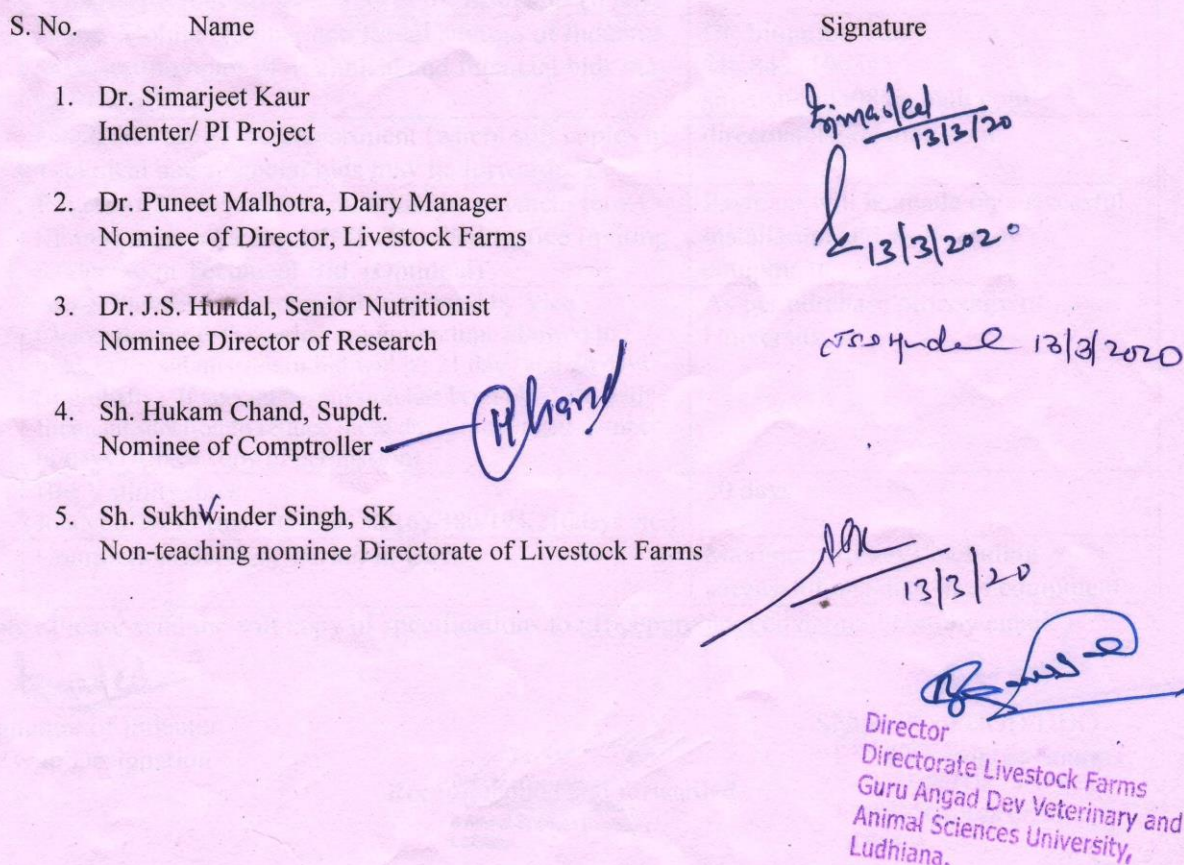 S. No. Name Signature
1. Dr. Simarjeet Kaur
Indenter/ PI Project
Simarjeet
13/3/20
2. Dr. Puneet Malhotra, Dairy Manager
Nominee of Director, Livestock Farms
13/3/2020
3. Dr. J.S. Hundal, Senior Nutritionist
Nominee Director of Research
JSHundal 13/3/2020
4. Sh. Hukam Chand, Supdt.
Nominee of Comptroller
HChand
5. Sh. Sukhwinder Singh, SK
Non-teaching nominee Directorate of Livestock Farms
13/3/20
Director
Directorate Livestock Farms
Guru Angad Dev Veterinary and
Animal Sciences University,
Ludhiana.